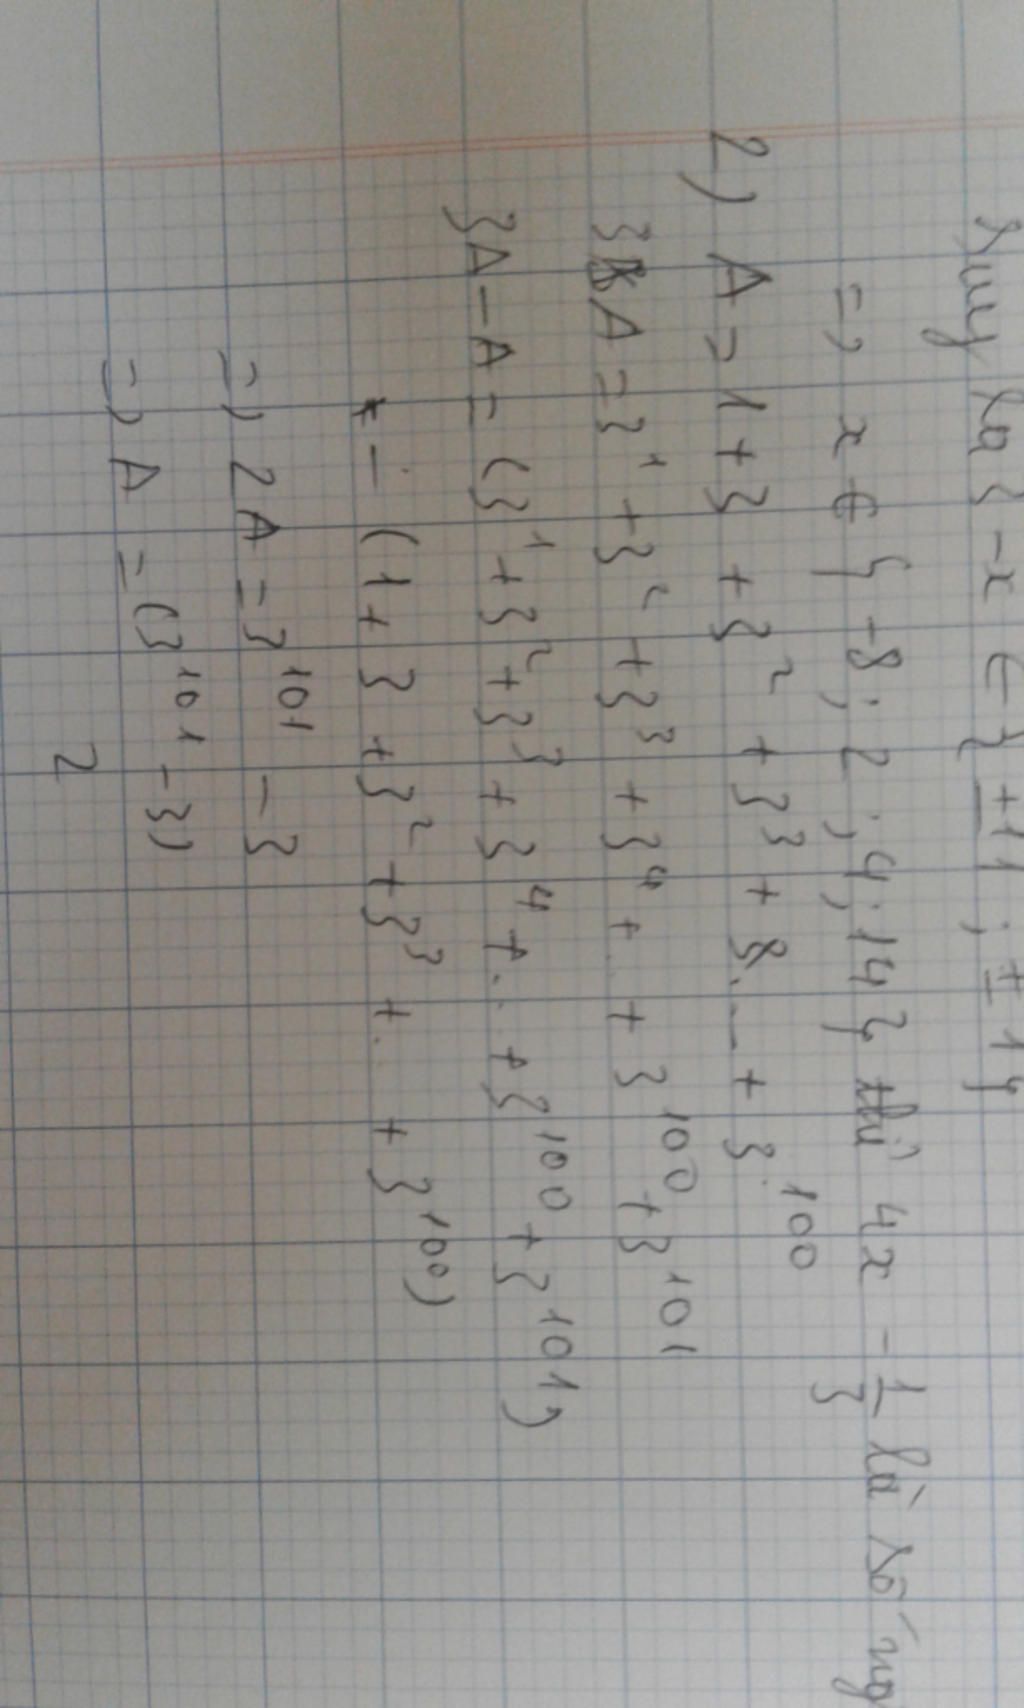 suy ra 3-x ∈ {±11; ±1}
=> x ∈ {-8; 2; 4; 14} thì 4x - 1/3 là số
2) A = 1 + 3 + 3² + 3³ + ... + 3¹⁰⁰
3A = 3¹ + 3² + 3³ + 3⁴ + .. + 3¹⁰⁰ + 3¹⁰¹
3A - A = (3¹ + 3² + 3³ + 3⁴ + ... + 3¹⁰⁰ + 3¹⁰¹)
- (1 + 3 + 3² + 3³ + .. + 3¹⁰⁰)
=> 2A = 3¹⁰¹ - 3
=> A = (3¹⁰¹ - 3)
2